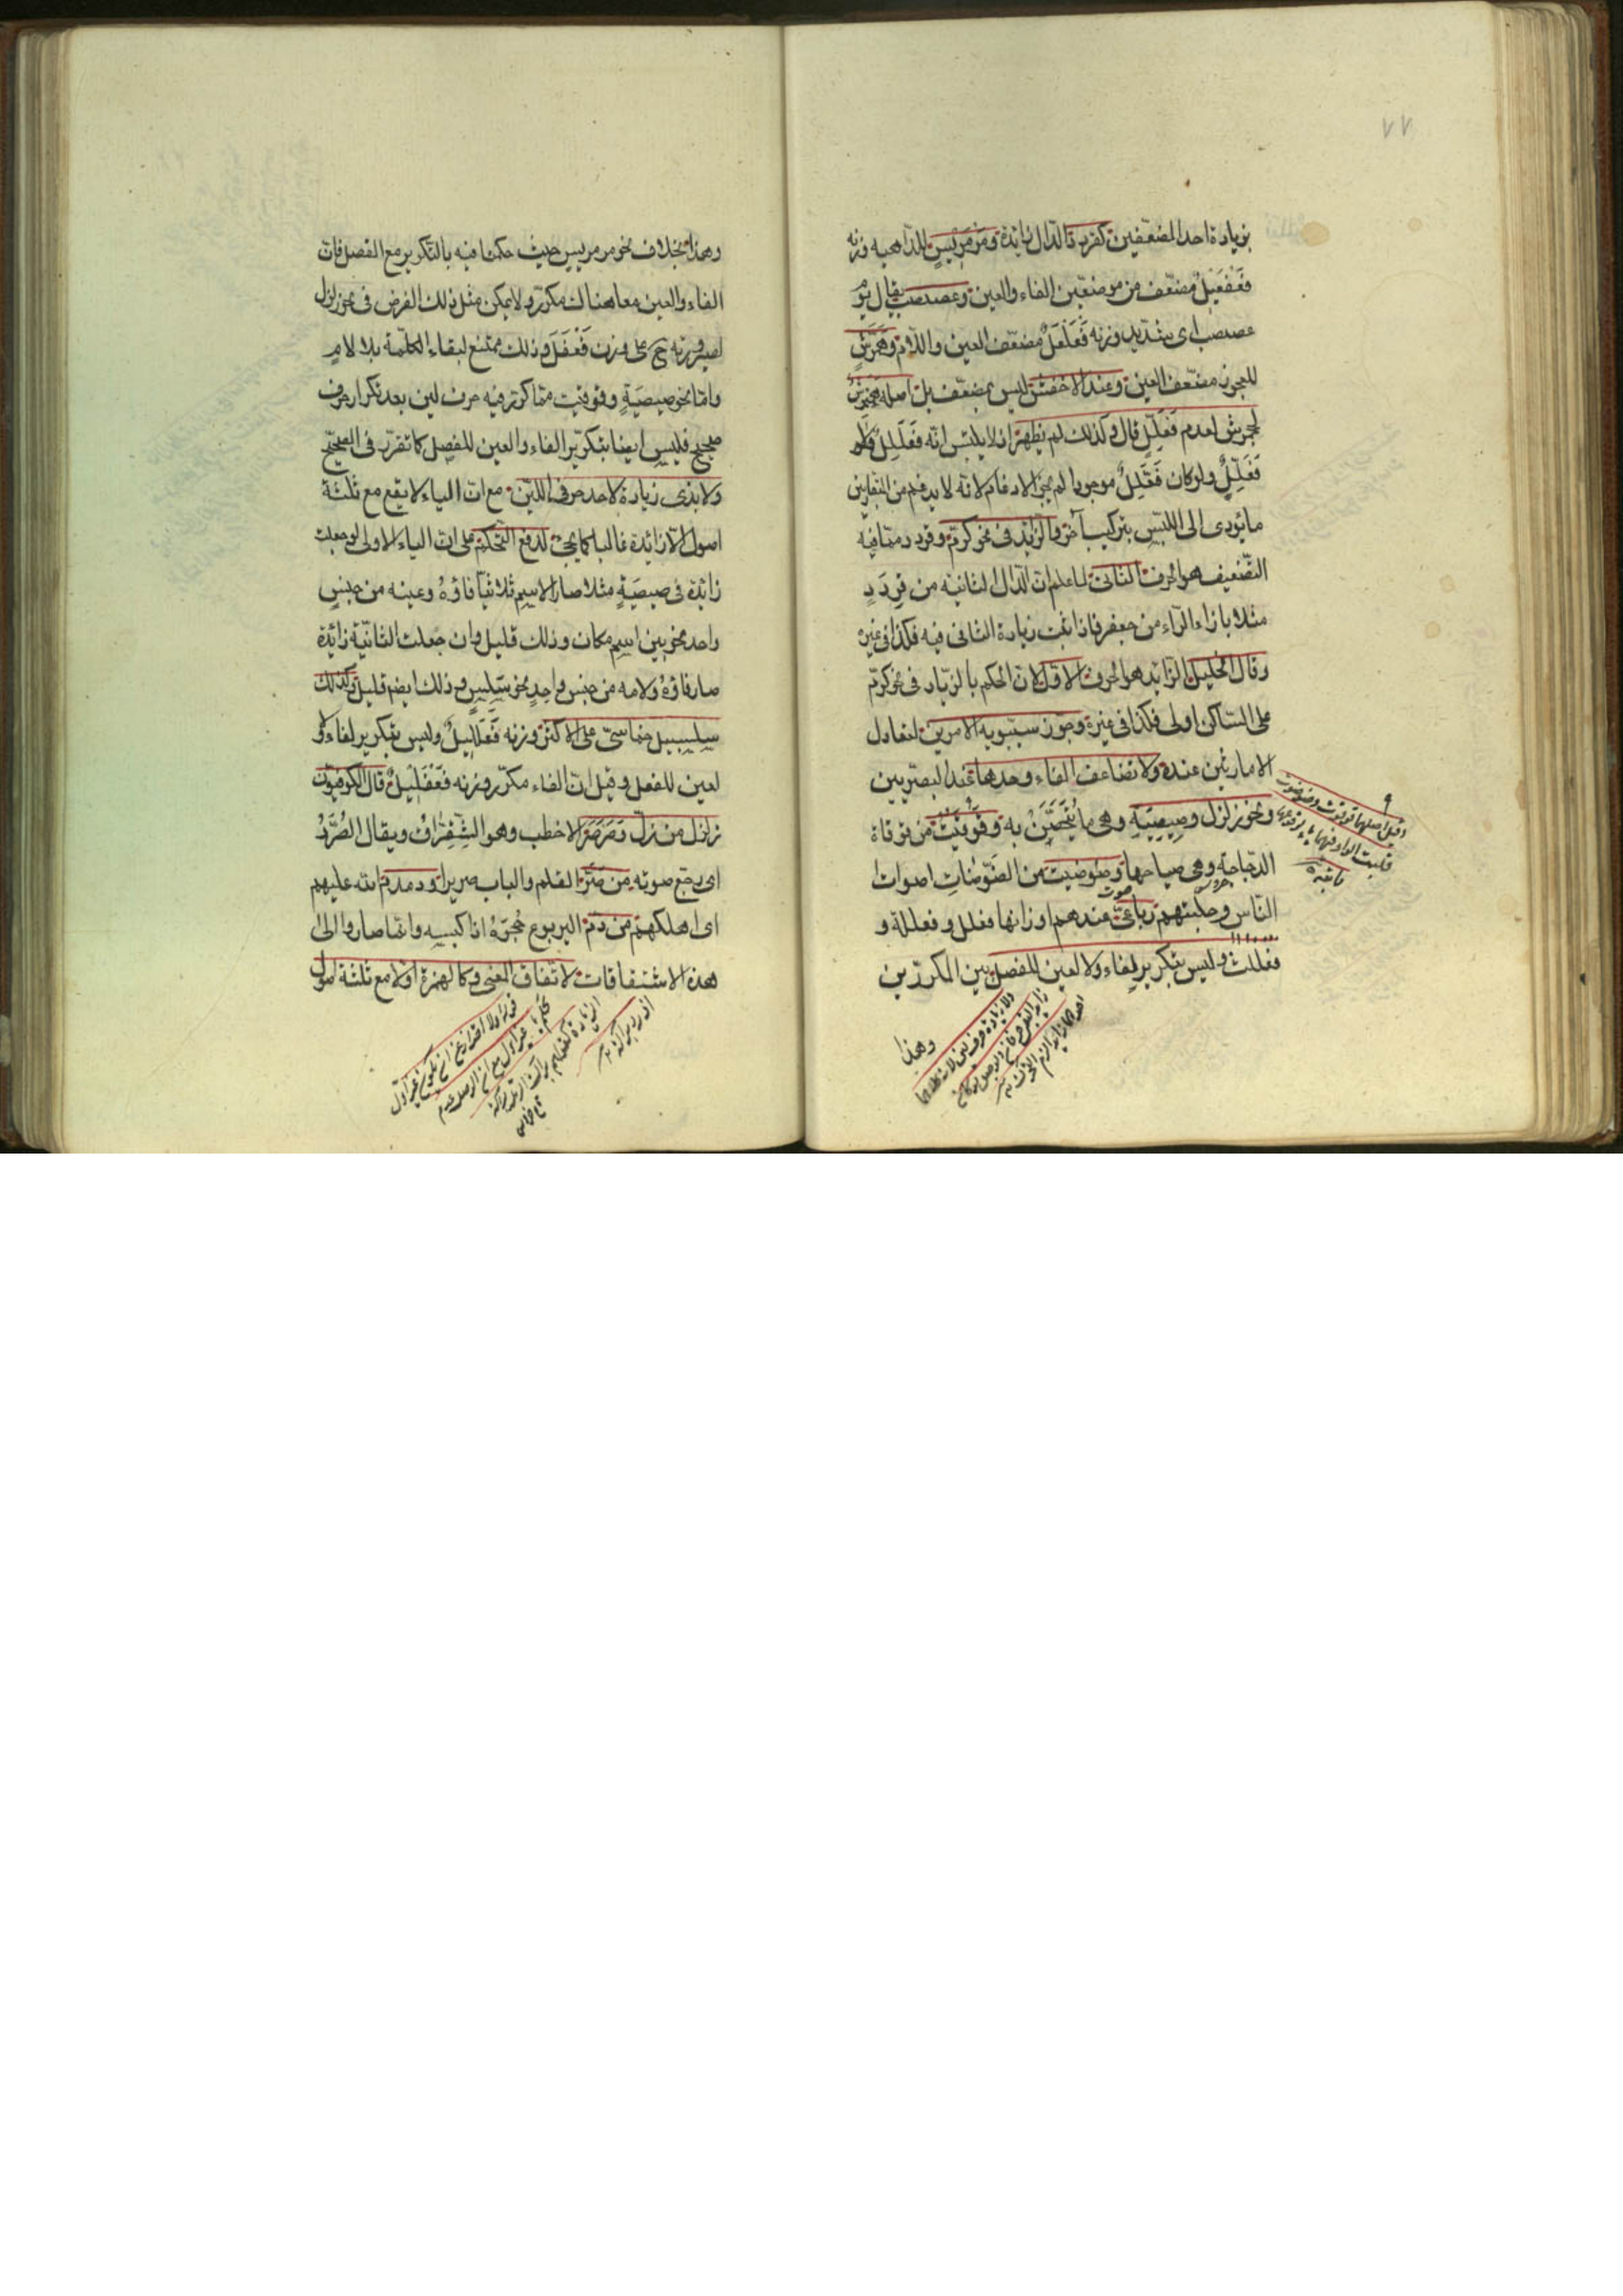 ٧٧
بزيادة احد المضعفين كقردد فالدال زائدة ومرمريس للداهية وزنه
فَعْفَعِيْلٌ مضعّف من موضعين الفاء والعين وعصبصب يقال يوم
عصبصب اى شديد وزنه فَعَلْعَلٌ مضعّف العين واللام وهمّرش
للعجوز مضعّف العين وعند الاخفش ليس بمضعّف بل اصله هنمرش
كجحمرش لعدم فَعَّلِلٍ قال وكذلك لم يظهر اذ لا يلتبس انّه فَعْلَلِلٌ او
فَعَّلِلٌ ولو كان فَعَّلِلٌ موجودا لم يجز الادغام لانه لا يدغم من المتقاربين
ما يؤدى الى اللبس بتركيب آخر والزائد فى نحو كرّم وقردد ممّا فيه
التضعيف هو الحرف الثانى لما علم ان الدال الثانية من قَردَدٍ
مثلا بازاء الراء من جعفر فاذا ثبت زيادة الثانى فيه فكذا فى غيره
وقال الخليل الزائد هو الحرف الاول لان الحكم بالزياد فى نحو كرّم
على الساكن اولى فكذا فى غيره وجوّز سيبويه الامرين لتعادل
الامارتين عنده ولا تضاعف الفاء وحدها عند البصريين
ونحو زلزل وصِيصِيَةٍ وهى ما يُتَحَصَّنُ به وقَوْقَيْتُ من قوقاة
الدجاجة وهى صياحها وضوضيت من الضَّوضاتِ اصوات
الناس وجلبتهم رباعىّ عندهم اوزانها فعلل وفعللة و
فعللت وليس بتكرير لفاء ولا لعين للفصل بين المكررين
وهذا
وهذا بخلاف نحو مرمريس حيث حكمنا فيه بالتكرير مع الفصل فان
الفاء والعين معا هناك مكررة ولا يمكن مثل ذلك الفرض فى نحو زلزل
لصيرورته ح على وزن فَعْفَلَ وذلك ممتنع لبقاء الكلمة بلا لامٍ
وامّا نحو صيصيَةٍ وقوقيت ممّا كرّر فيه حرف لين بعد تكرار حرف
صحيح فليس ايضا بتكرير الفاء والعين للفصل كما تقرّر فى الصحيح
ولا بذى زيادة لاحد حرفى اللين مع ان الياء لا يقع مع ثلثة
اصول الا زائدة غالبا كما يجئ لدفع التحكم على ان الياء الاولى لو جعلت
زائدة فى صيصيَةٍ مثلا صار الاسم ثلاثيّا فاؤهُ وعينه من جنسٍ
واحد نحو بين اسم مكان وذلك قليل وان جعلت الثانيّة زائدة
صار فاؤهُ ولامه من جنس واحدٍ نحو سَلِسٍ وذلك ايضم قليل وكذلك
سلسبيل خماسىّ على الاكثر وزنه فَعْلَلِيلٌ وليس بتكرير لفاء ولا
لعين للفصل وقيل ان الفاء مكرّر وزنه فَعْفَلِيْلٌ قال الكوفيّون
زلزل من زلّ وصَرصَرَ الاخطب وهو الشِّقِرّاقُ ويقال الصُّرَدُ
اى رجّع صوته من صَرَّ القلم والباب صريرا ودمدم الله عليهم
اى اهلكهم من دَمَّ اليربوع جُحرَهُ اذا كبسه وانما صاروا الى
هذه الاشتقاقات لاتفاق المعنى وكالهمزة اولا مع ثلثة اصول